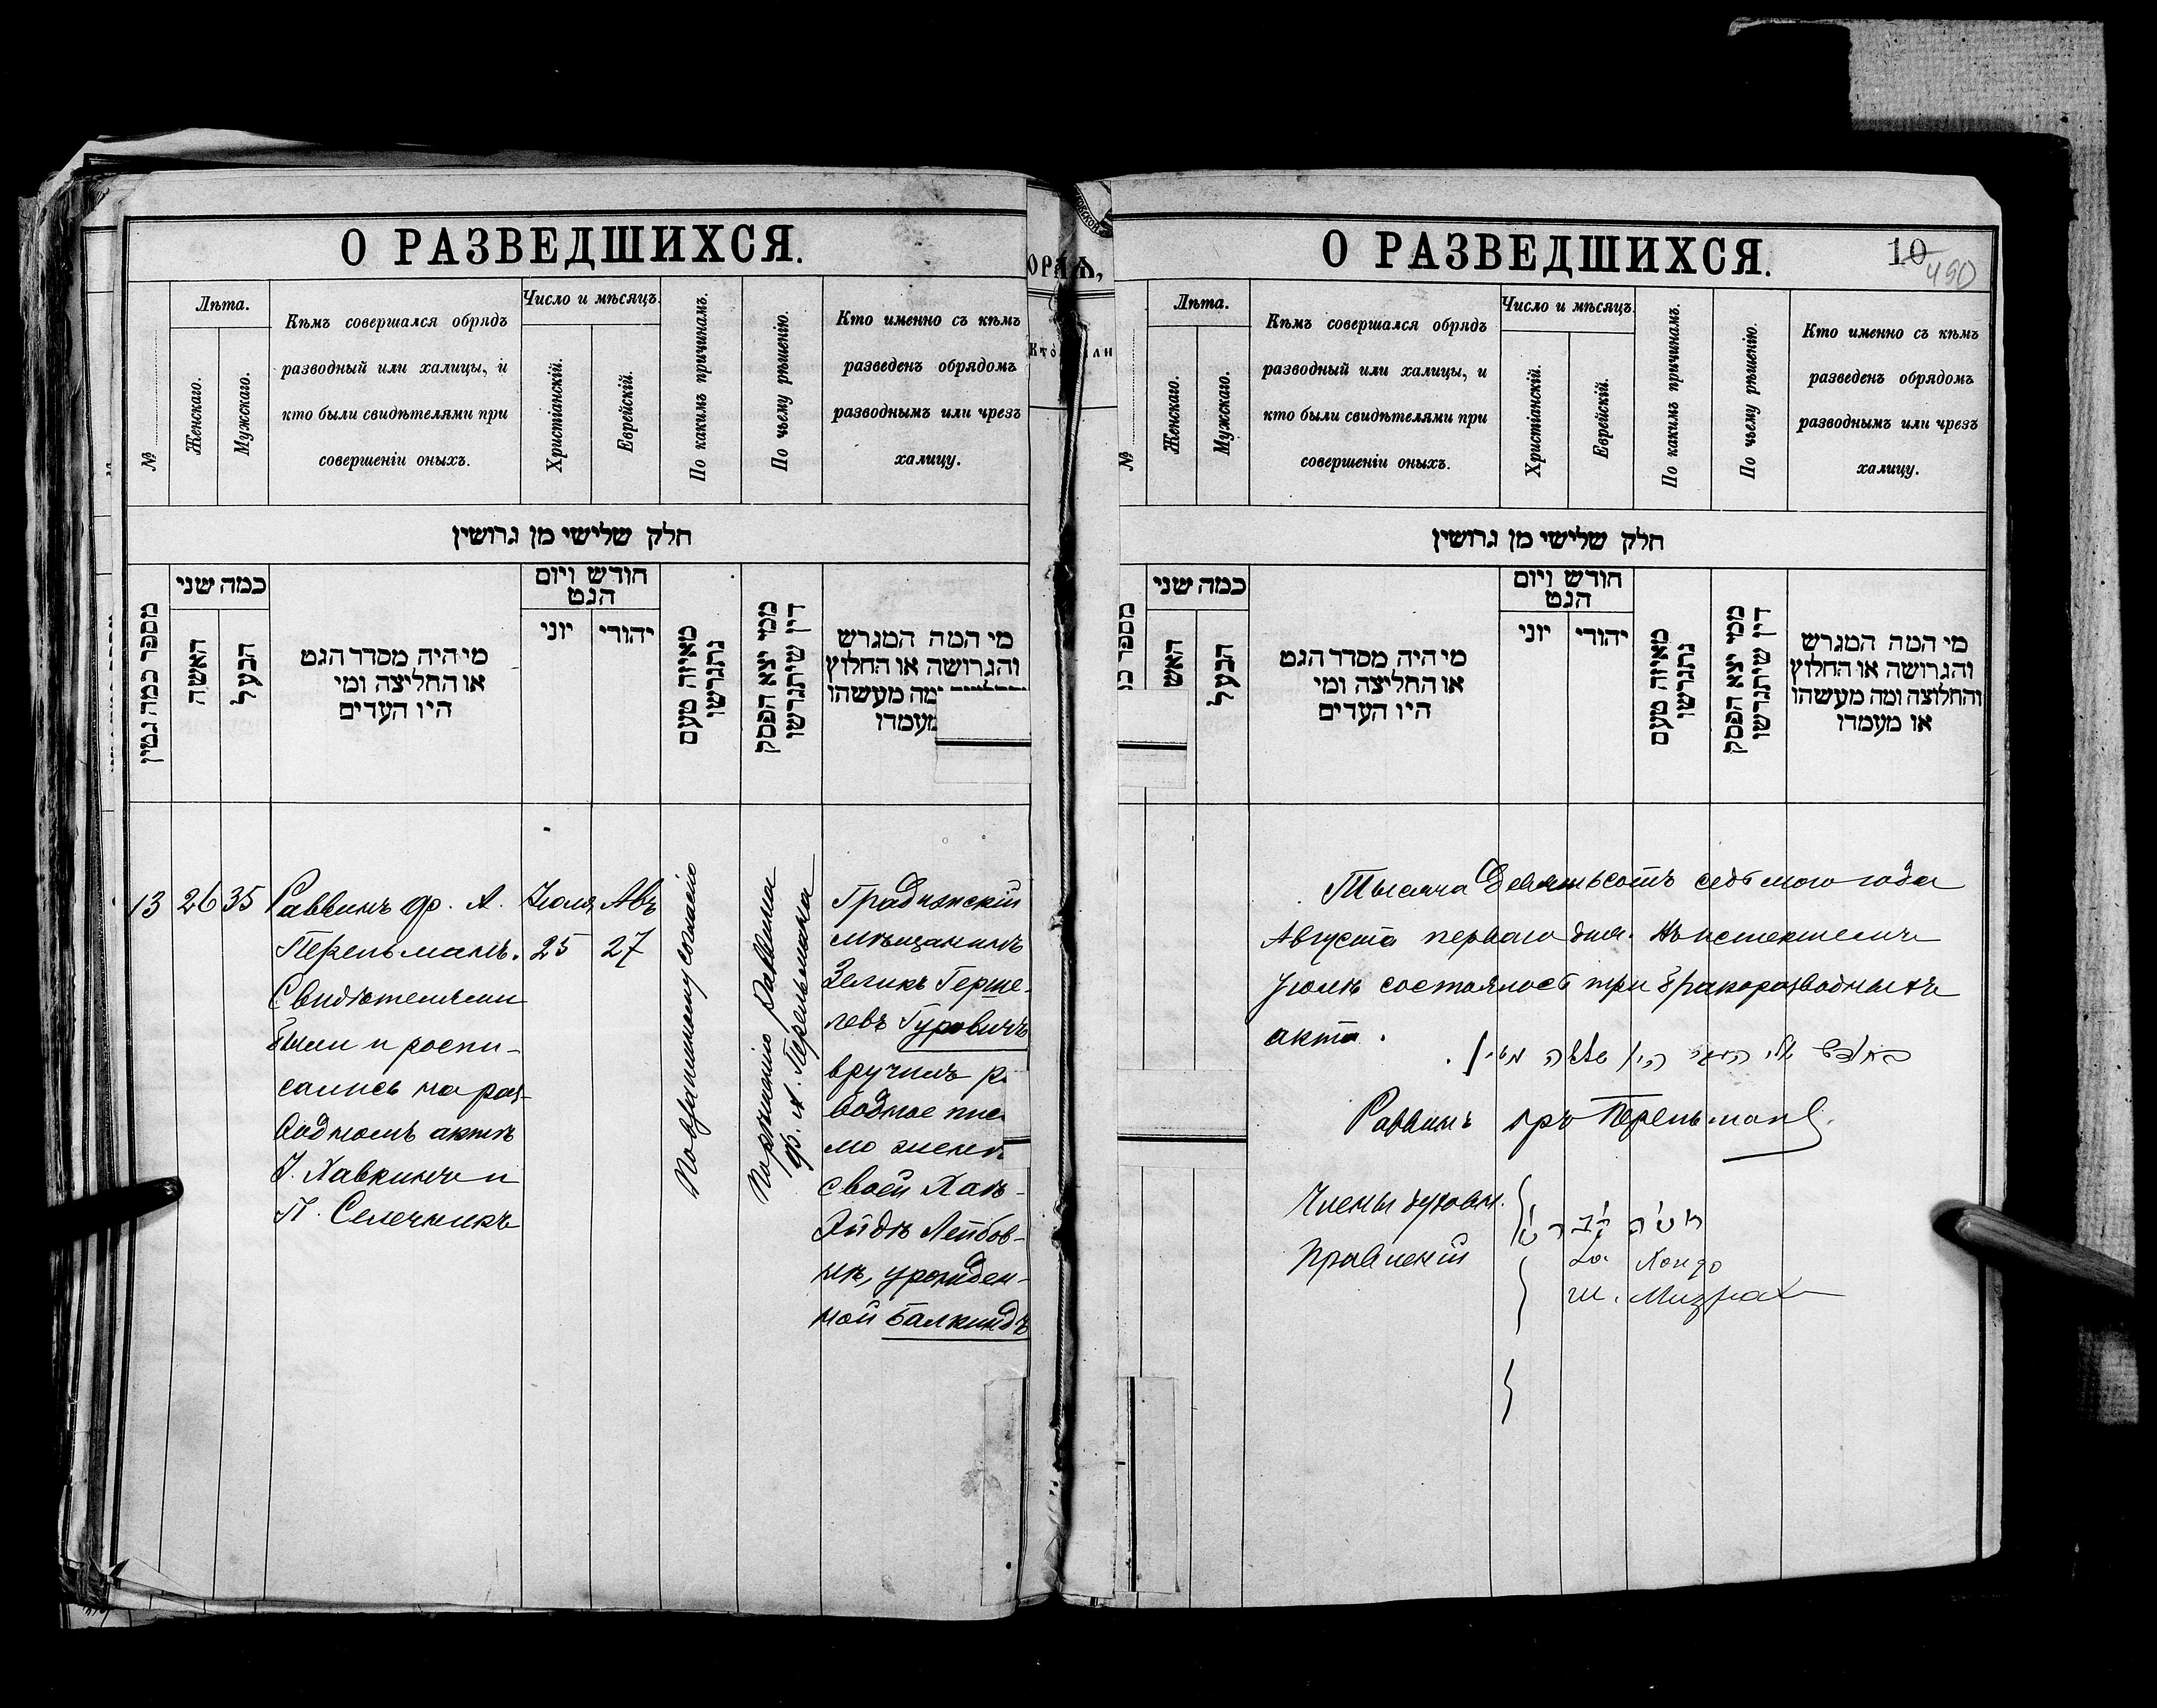 О РАЗВЕДШИХСЯ.
№
Лѣта.
Женскаго.
Мужскаго.
Кѣмъ совершался обрядъ
разводный или халицы, и
кто были свидѣтелями при
совершеніи оныхъ.
Число и мѣсяцъ.
Христіанскій.
Еврейскій.
По какимъ причинамъ.
По чьему рѣшенію.
Кто именно съ кѣмъ
разведенъ обрядомъ
разводнымъ или чрезъ
халицу.
חלק שלישי מן גרושין
מספר כמה גטין
כמה שני
האשה
הבעל
מי היה מסדר הגט
או החליצה ומי
היו העדים
חודש ויום
הגט
יוני
יהודי
מאיזה טעם
נתגרשו
ממי יצא הפסק
דין שיתגרשו
מי המה המגרש
והגרושה או החלוץ
ומה מעשהו
מעמדו
13
26
35
Раввинъ др. А.
Перельманъ.
Свидѣтелями
были и роспи-
сались на раз-
водномъ актѣ
І. Хавкинъ и
П. Селечникъ
Іюля
25
Авъ
27
По взаимному согласію
По рѣшенію раввина
др. А. Перельмана
Градижскій
мѣщанинъ
Зеликъ Герше-
левъ Гуровичъ
вручилъ
водное
мо
своей Ханѣ-
Эйдѣ Лейбов-
нѣ, урожден-
ной Балкиндъ
О РАЗВЕДШИХСЯ.
10
490
№
Лѣта.
Женскаго.
Мужскаго.
Кѣмъ совершался обрядъ
разводный или халицы, и
кто были свидѣтелями при
совершеніи оныхъ.
Число и мѣсяцъ.
Христіанскій.
Еврейскій.
По какимъ причинамъ.
По чьему рѣшенію.
Кто именно съ кѣмъ
разведенъ обрядомъ
разводнымъ или чрезъ
халицу.
חלק שלישי מן גרושין
מספר
כמה שני
האש
הבעל
מי היה מסדר הגט
או החליצה ומי
היו העדים
חודש ויום
הגט
יוני
יהודי
מאיזה טעם
נתגרשו
ממי יצא הפסק
דין שיתגרשו
מי המה המגרש
והגרושה או החלוץ
והחלוצה ומה מעשהו
או מעמדו
Тысяча девятьсотъ седьмого года
Августа перваго дня. Въ истекшемъ
Іюлѣ состоялось три бракоразводныхъ
акта.
היו שלשה גטין.
Раввинъ др Перельманъ.
Члены духовн.
Правленій
Хондо
Ш. Мизрах